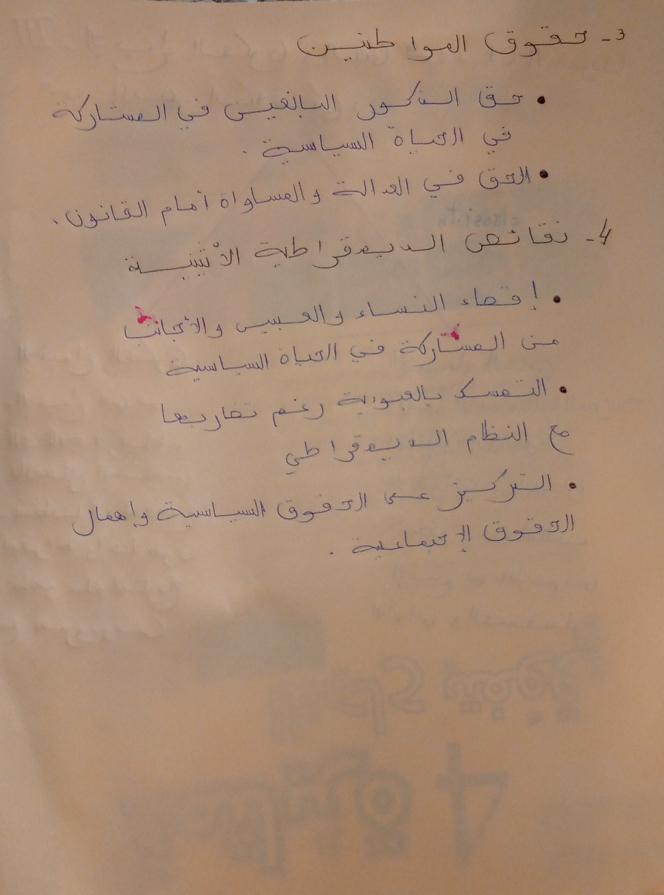 3- حقوق المواطنين
• حق الذكور البالغين في المشاركة
في الحياة السياسية .
• الحق في العدالة والمساواة أمام القانون .
4- نقائص الديمقراطية الأثينية
• إقصاء النساء والعبيد والأجانب
من المشاركة في الحياة السياسية
• التمسك بالعبودية رغم تضاربها
مع النظام الديمقراطي
• التركيز على الحقوق السياسية وإهمال
الحقوق الإجتماعية .